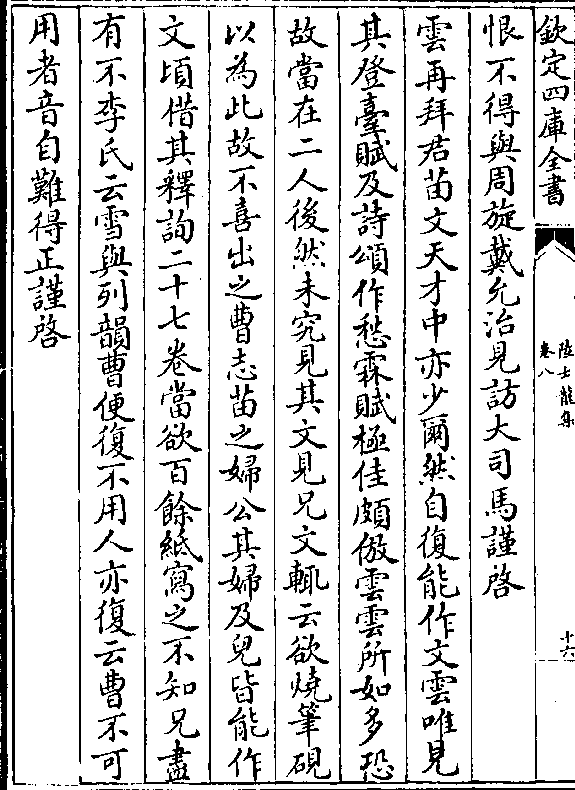 欽定四庫全書
陸士龍集
卷八
十六
恨不得與周旋戴允治見訪大司馬謹啓
雲再拜君苗文天才中亦少爾然自復能作文雲唯見
其登臺賦及詩頌作愁霖賦極佳頗倣雲雲所如多恐
故當在二人後然未究見其文見兄文輒云欲燒筆硯
以為此故不喜出之曹志苗之婦公其婦及兒皆能作
文頃借其釋詢二十七卷當欲百餘紙寫之不知兄盡
有不李氏云雪與列韻曹便復不用人亦復云曹不可
用者音自難得正謹啓